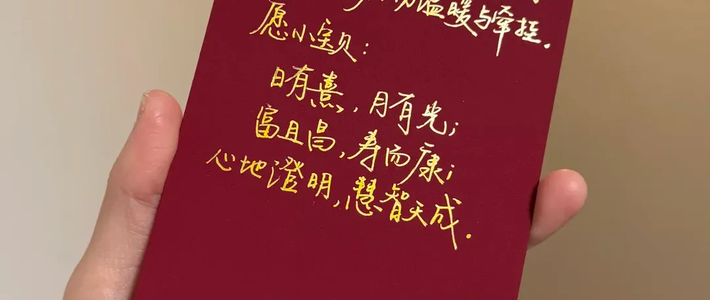 温暖与牵挂.
愿小宝贝:
日有熹,月有光;
富且昌,寿而康;
心地澄明,慧智天成.